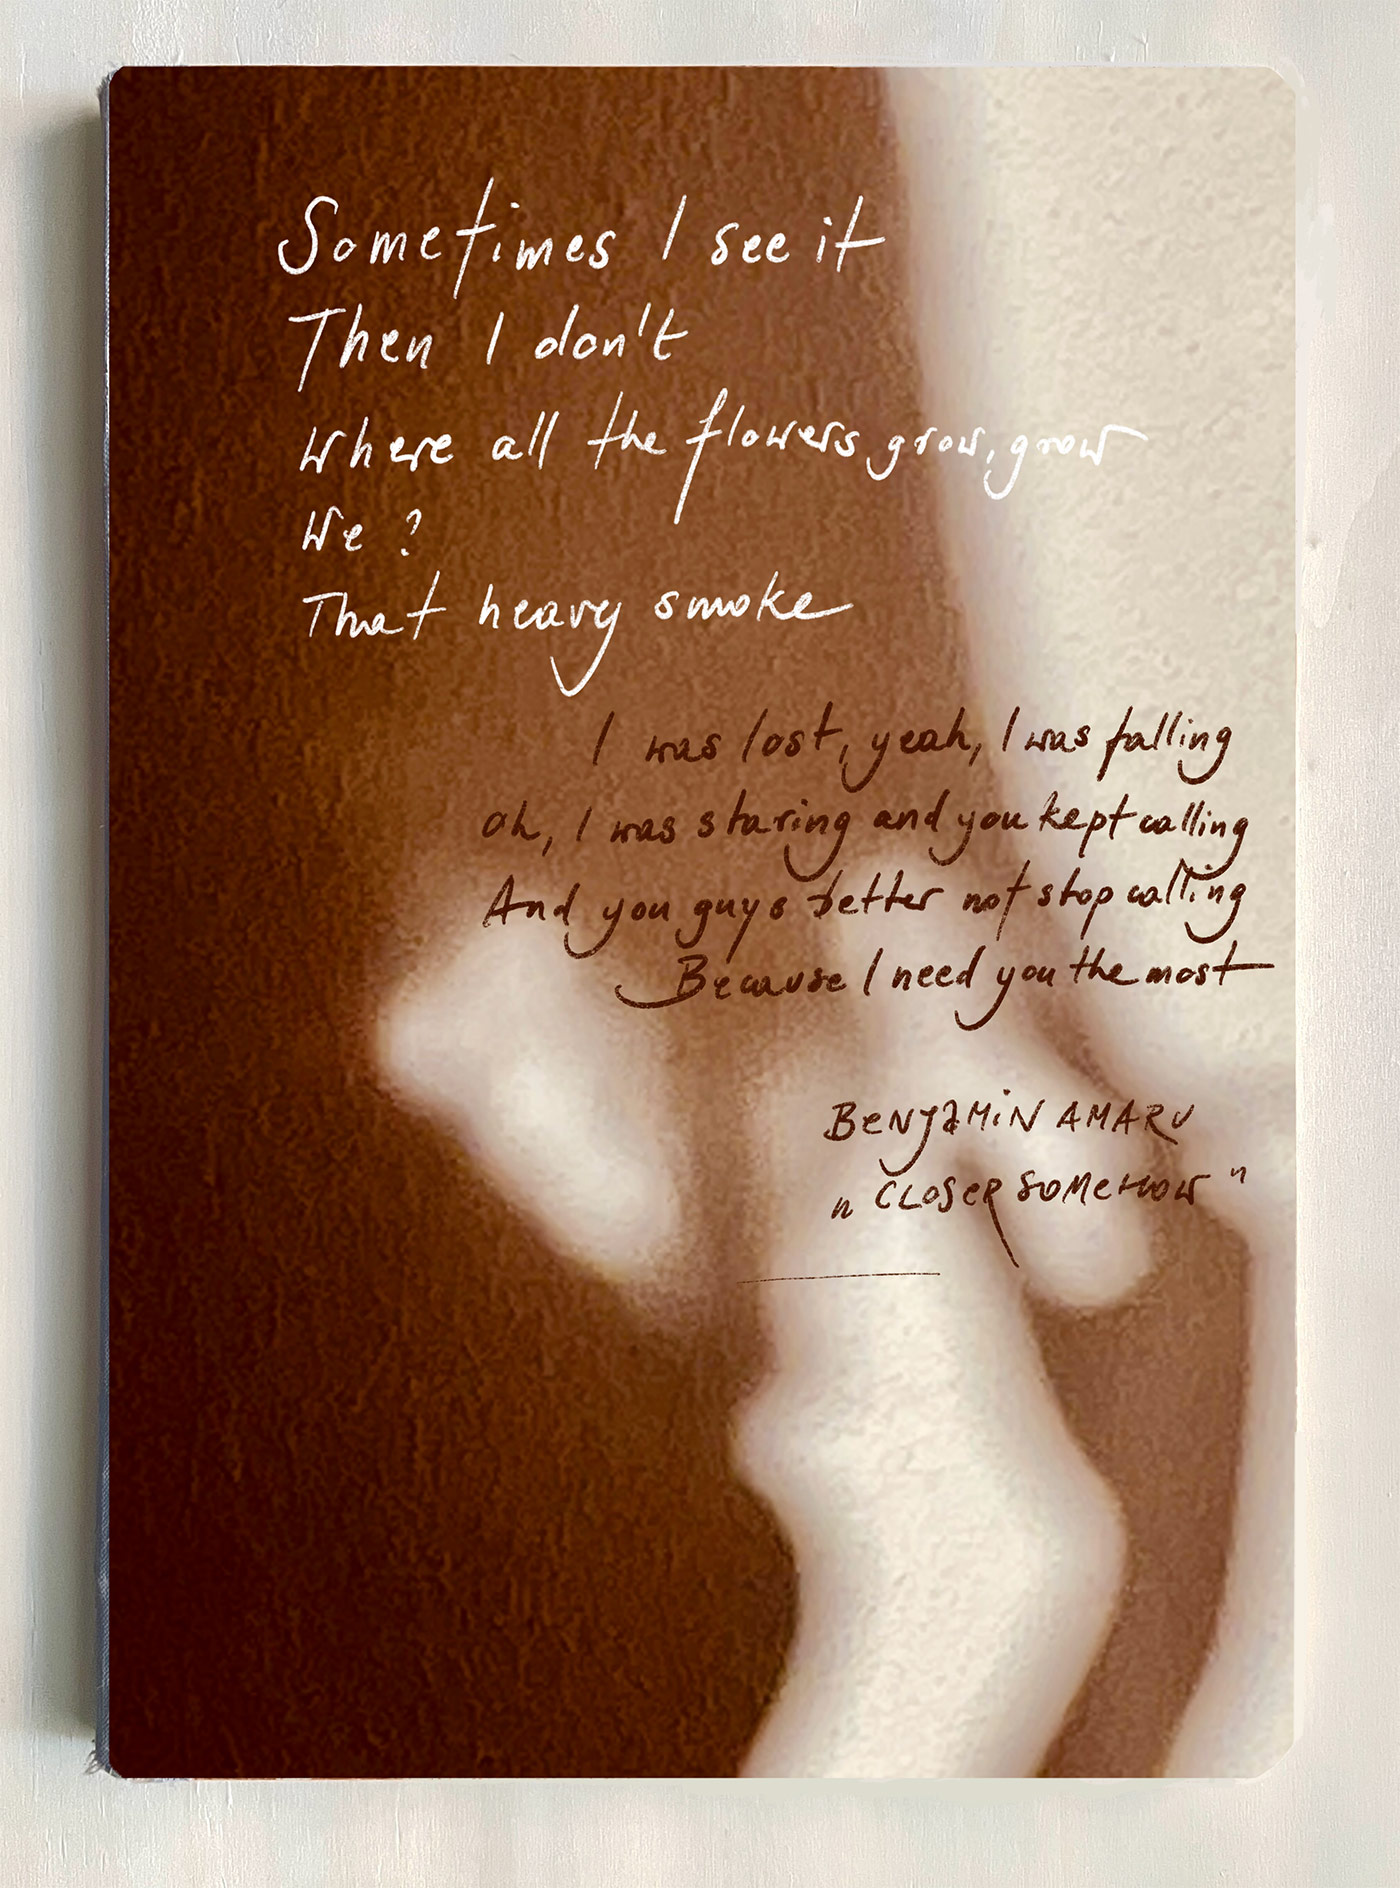 Sometimes I see it
Then I don't
Where all the flowers grow, grow
We ?
That heavy smoke
I was lost, yeah, I was falling
Oh, I was staring and you kept calling
And you guys better not stop calling
Because I need you the most
BENJAMIN AMARU
„ CLOSER SOMEHOW "